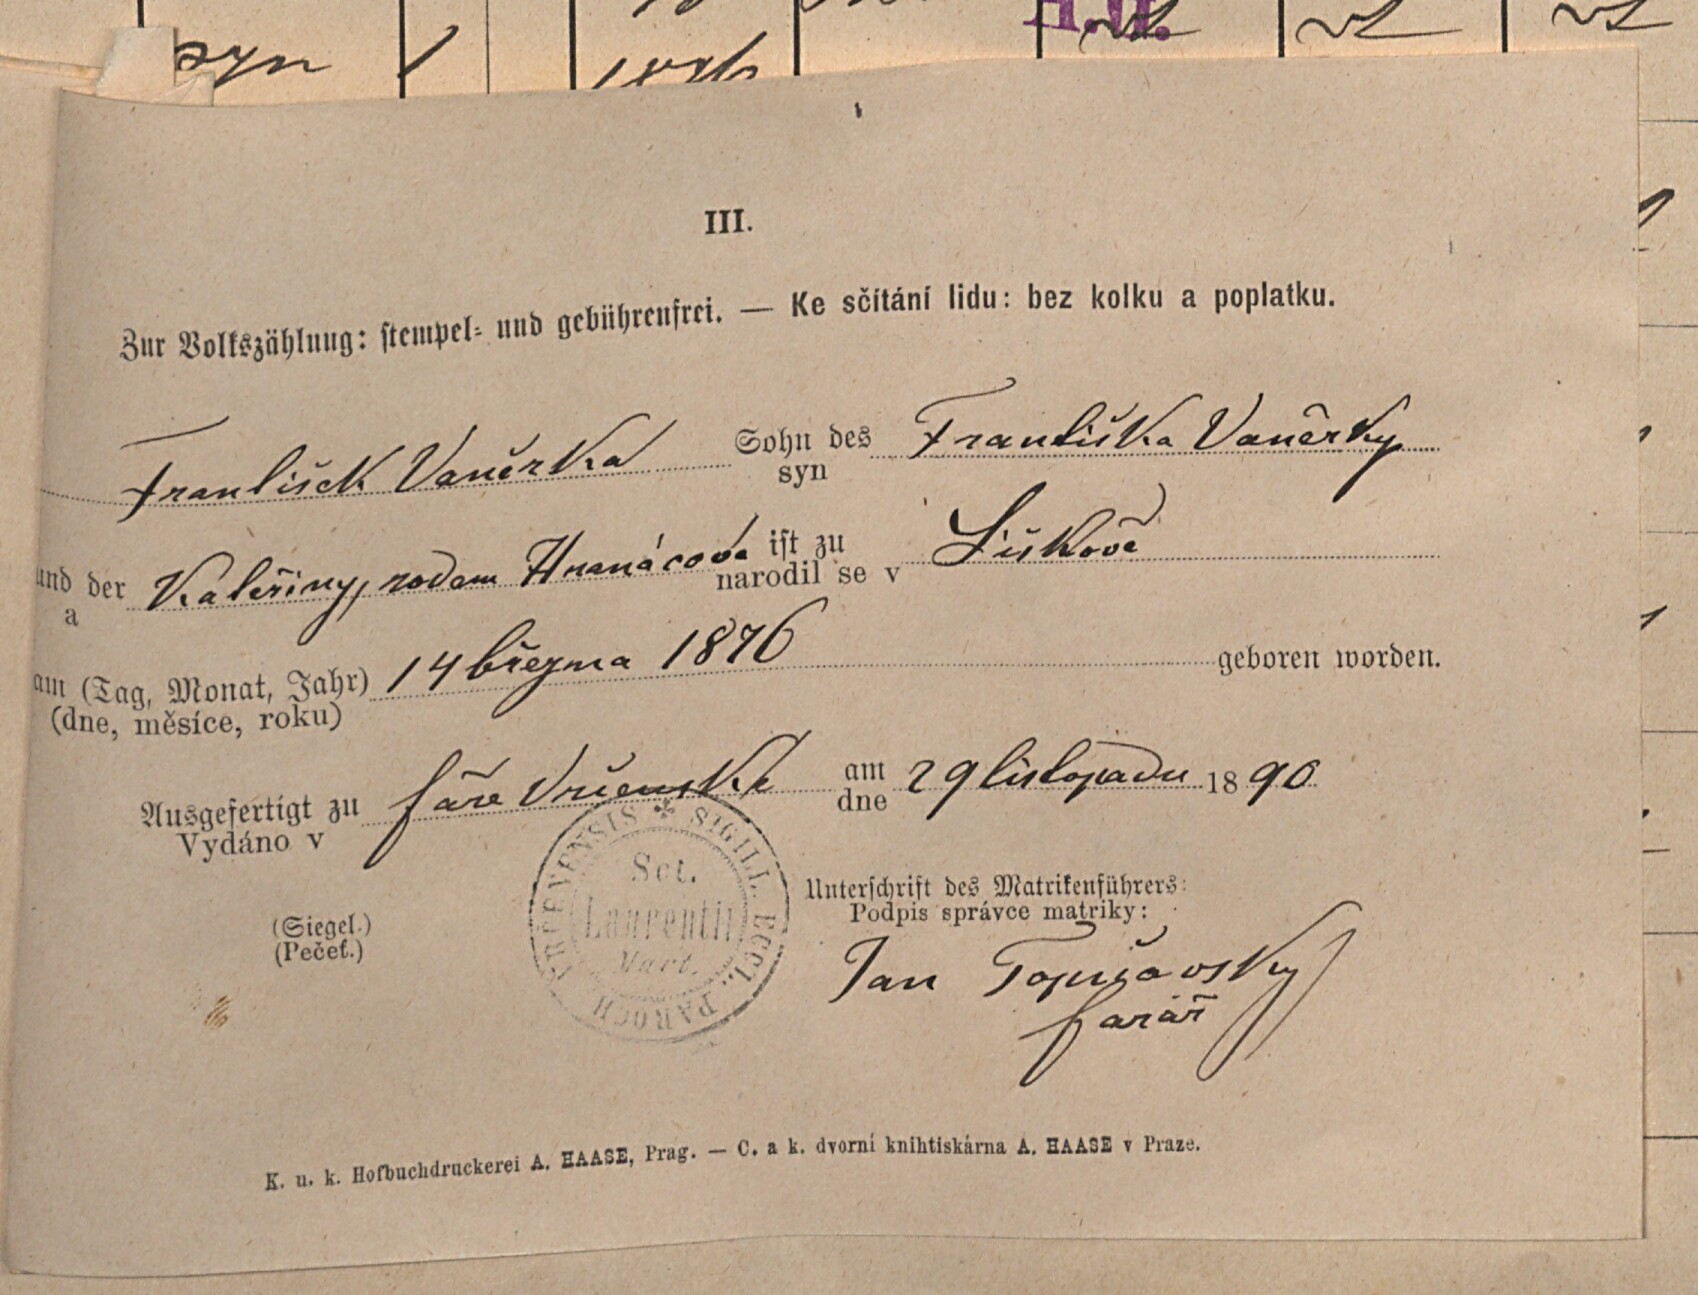 syn
III.
Zur Volkszählung: stempel- und gebührenfrei. — Ke sčítání lidu: bez kolku a poplatku.
František Vaněrka Sohn des Františka Vaněrky
syn
und der Kateřiny, rodem ist zu Liškově
a narodil se v
am (Tag, Monat, Jahr) 14 března 1876 geboren worden.
(dne, měsíce, roku)
Ausgefertigt zu faře am 29 listopadu 1890
Vydáno v dne
SIGILL. ECCL. PAROCH
Sct.
Laurentii
Mart.
Unterschrift des Matrikenführers:
Podpis správce matriky:
(Siegel.)
(Pečeť.)
Jan
farář
K. u. k. Hofbuchdruckerei A. HAASE, Prag. — C. a k. dvorní knihtiskárna A. HAASE v Praze.